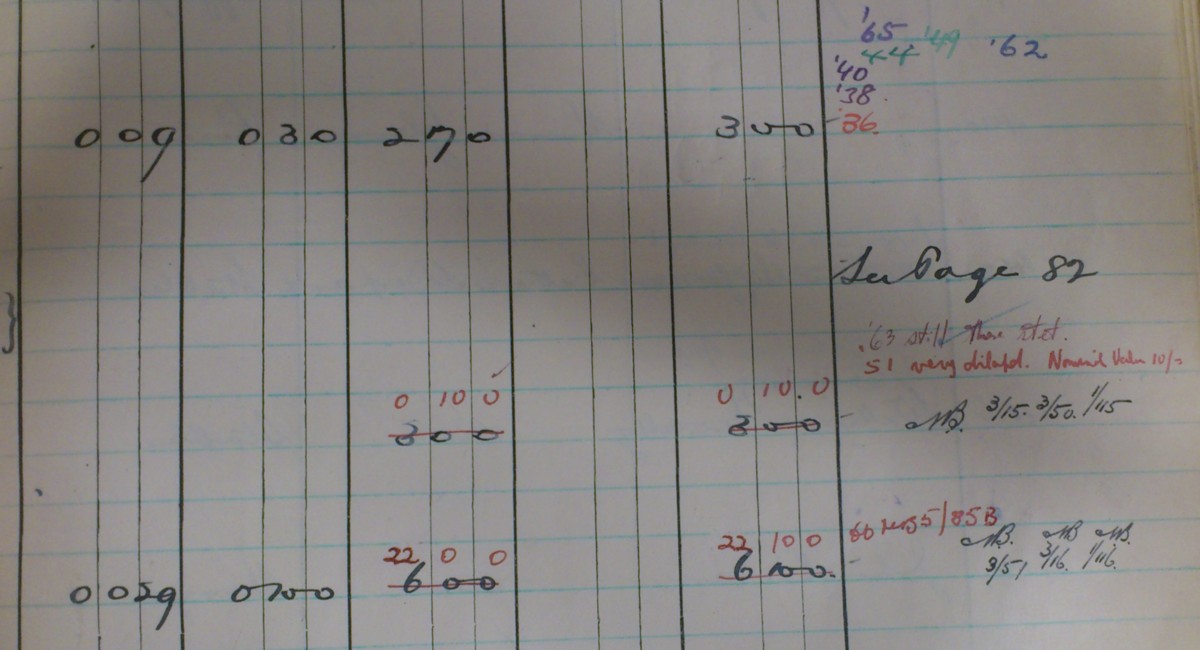 '65
44 '49 '62
'40
'38.
0 0 9 0 3 0 2 7 0 3 0 0 - '36.
See Page 82
'63 still there
51 very dilapd. Nominal Value 10/-
0 10 0 0 10.0
3 0 0 3 0 0 - NB. 3/15. 3/50. 1/45
22 0 0 22 10 0
6 0 0 6 10 0. - NB. NB NB.
0 0 9 0 0 3/51 3/16. 1/46.